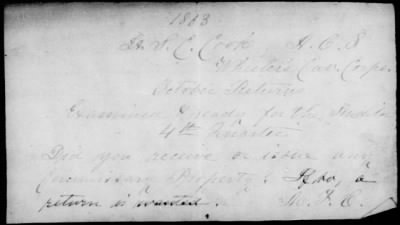 1863
H. L. C. Cook A. C. S
Wheeler's Cav. Corps.
October Returns
Examined & ready for the Auditor
4th Quarter
Did you receive or issue any
Commissary Property? If so, a
return is wanted.